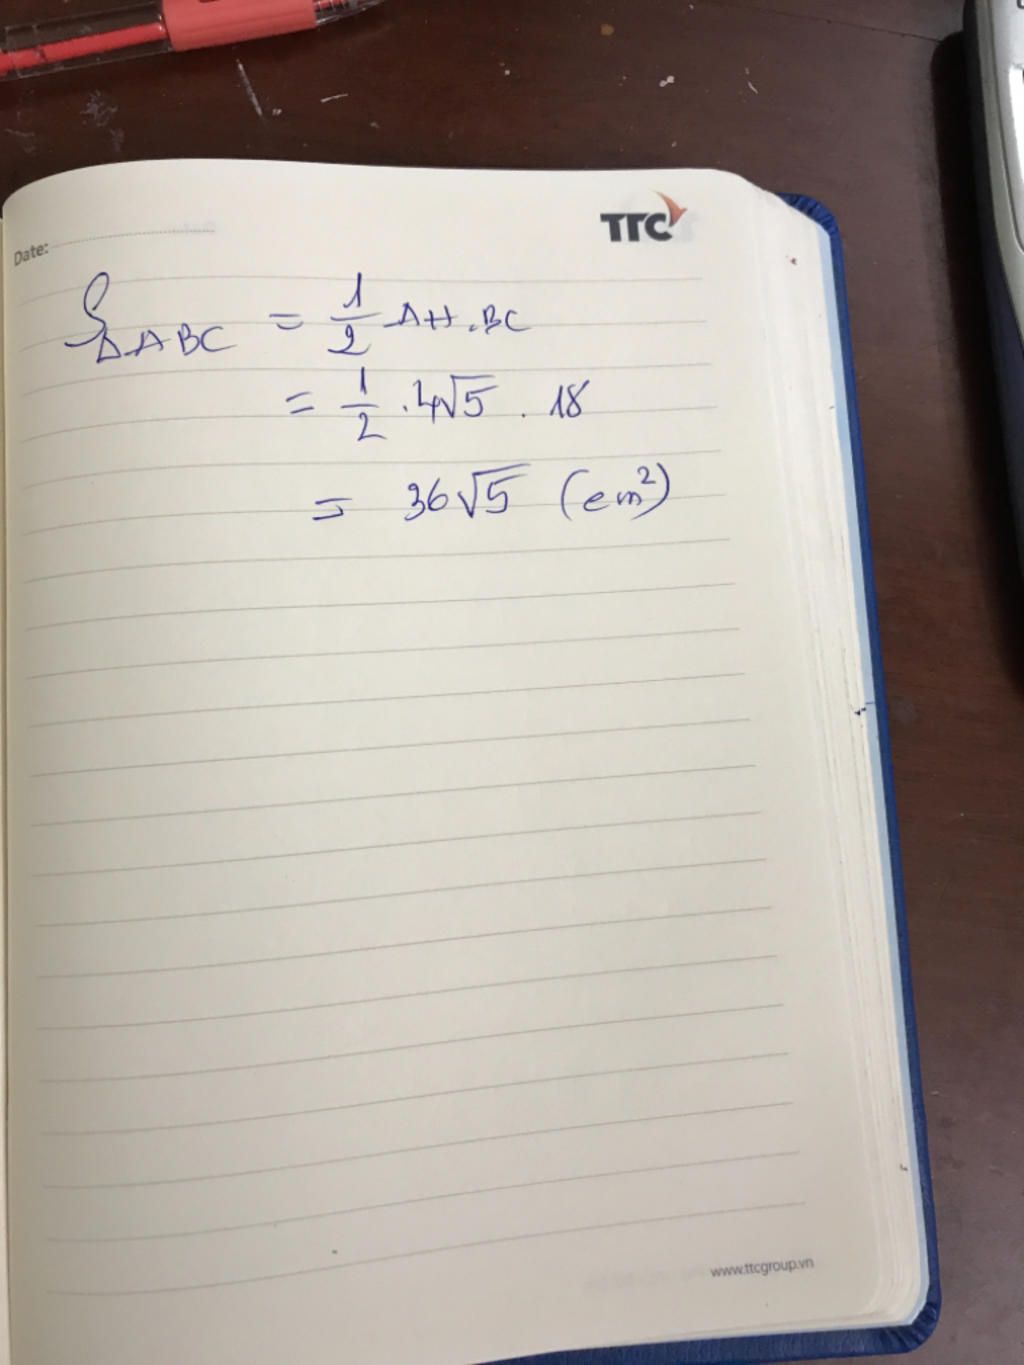 TTC
Date:
S△ABC = 1/2 AH.BC
= 1/2 . 4√5 . 18
= 36√5 (cm²)
www.ttcgroup.vn